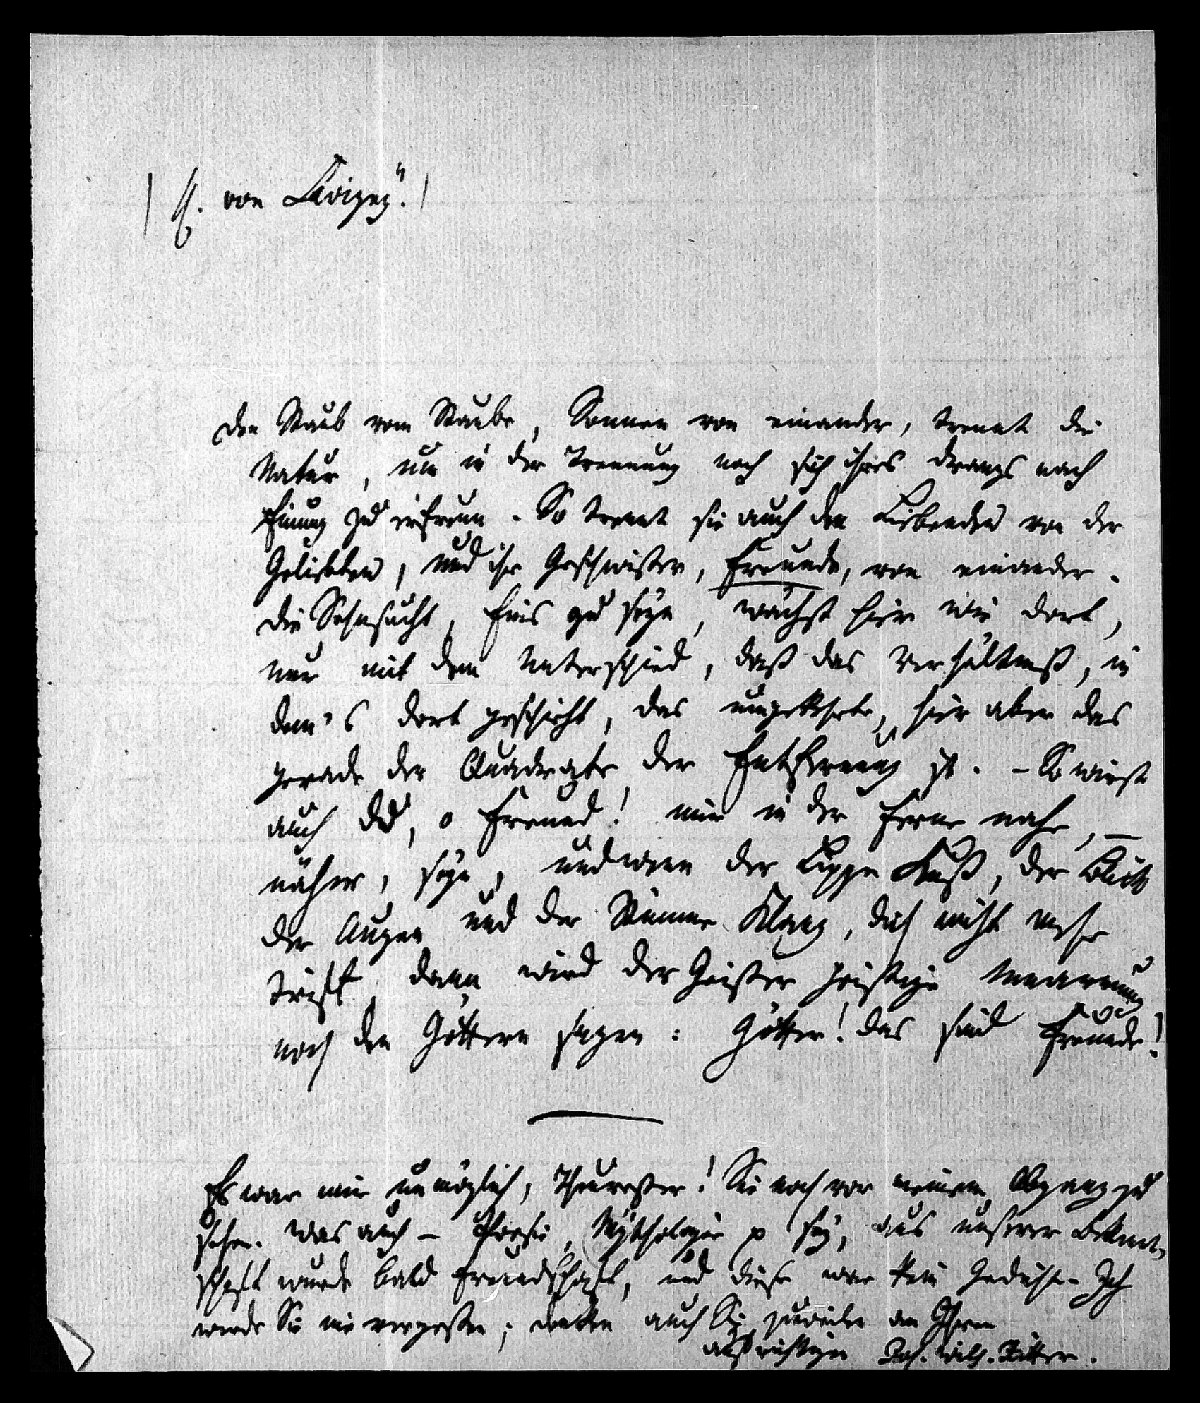 H. von Leipzig.
Den Staub vom Staube, Sonnen von einander, trennt die
Natur, um in der Trennung noch sich ihres Drangs nach
Einung zu erfreun. So trennt sie auch den Liebenden von der
Geliebten, und ihre Geschwister, Freunde, von einander.
Die Sehnsucht, Eins zu seyn, wächst hier wie dort,
nur mit dem Unterschied, daß das Verhältniß, in
dem's dort geschieht, das umgekehrte, hier aber das
gerade der Quadrate der Entfernung ist. – So wirst
auch Du, o Freund! mir in der Ferne nahe, –
näher, seyn, und wenn der Lippe Kuß, der Blick
der Augen und der Stimme Klang, dich nicht mehr
trifft, dann wird der Geister geistige
noch den Göttern sagen: Götter! das sind Freunde!
Es war mir unmöglich, Theurester! Sie noch vor meinem Abgang zu
sehn. Was auch – Poesie, Mythologie p sey, aus unserer Bekannt-
schaft wurde bald Freundschaft, und diese war kein Gedicht. Ich
werde Sie nie vergessen; denken auch Sie zuweilen an Ihren
aufrichtigen Joh. Wilh. Ritter.